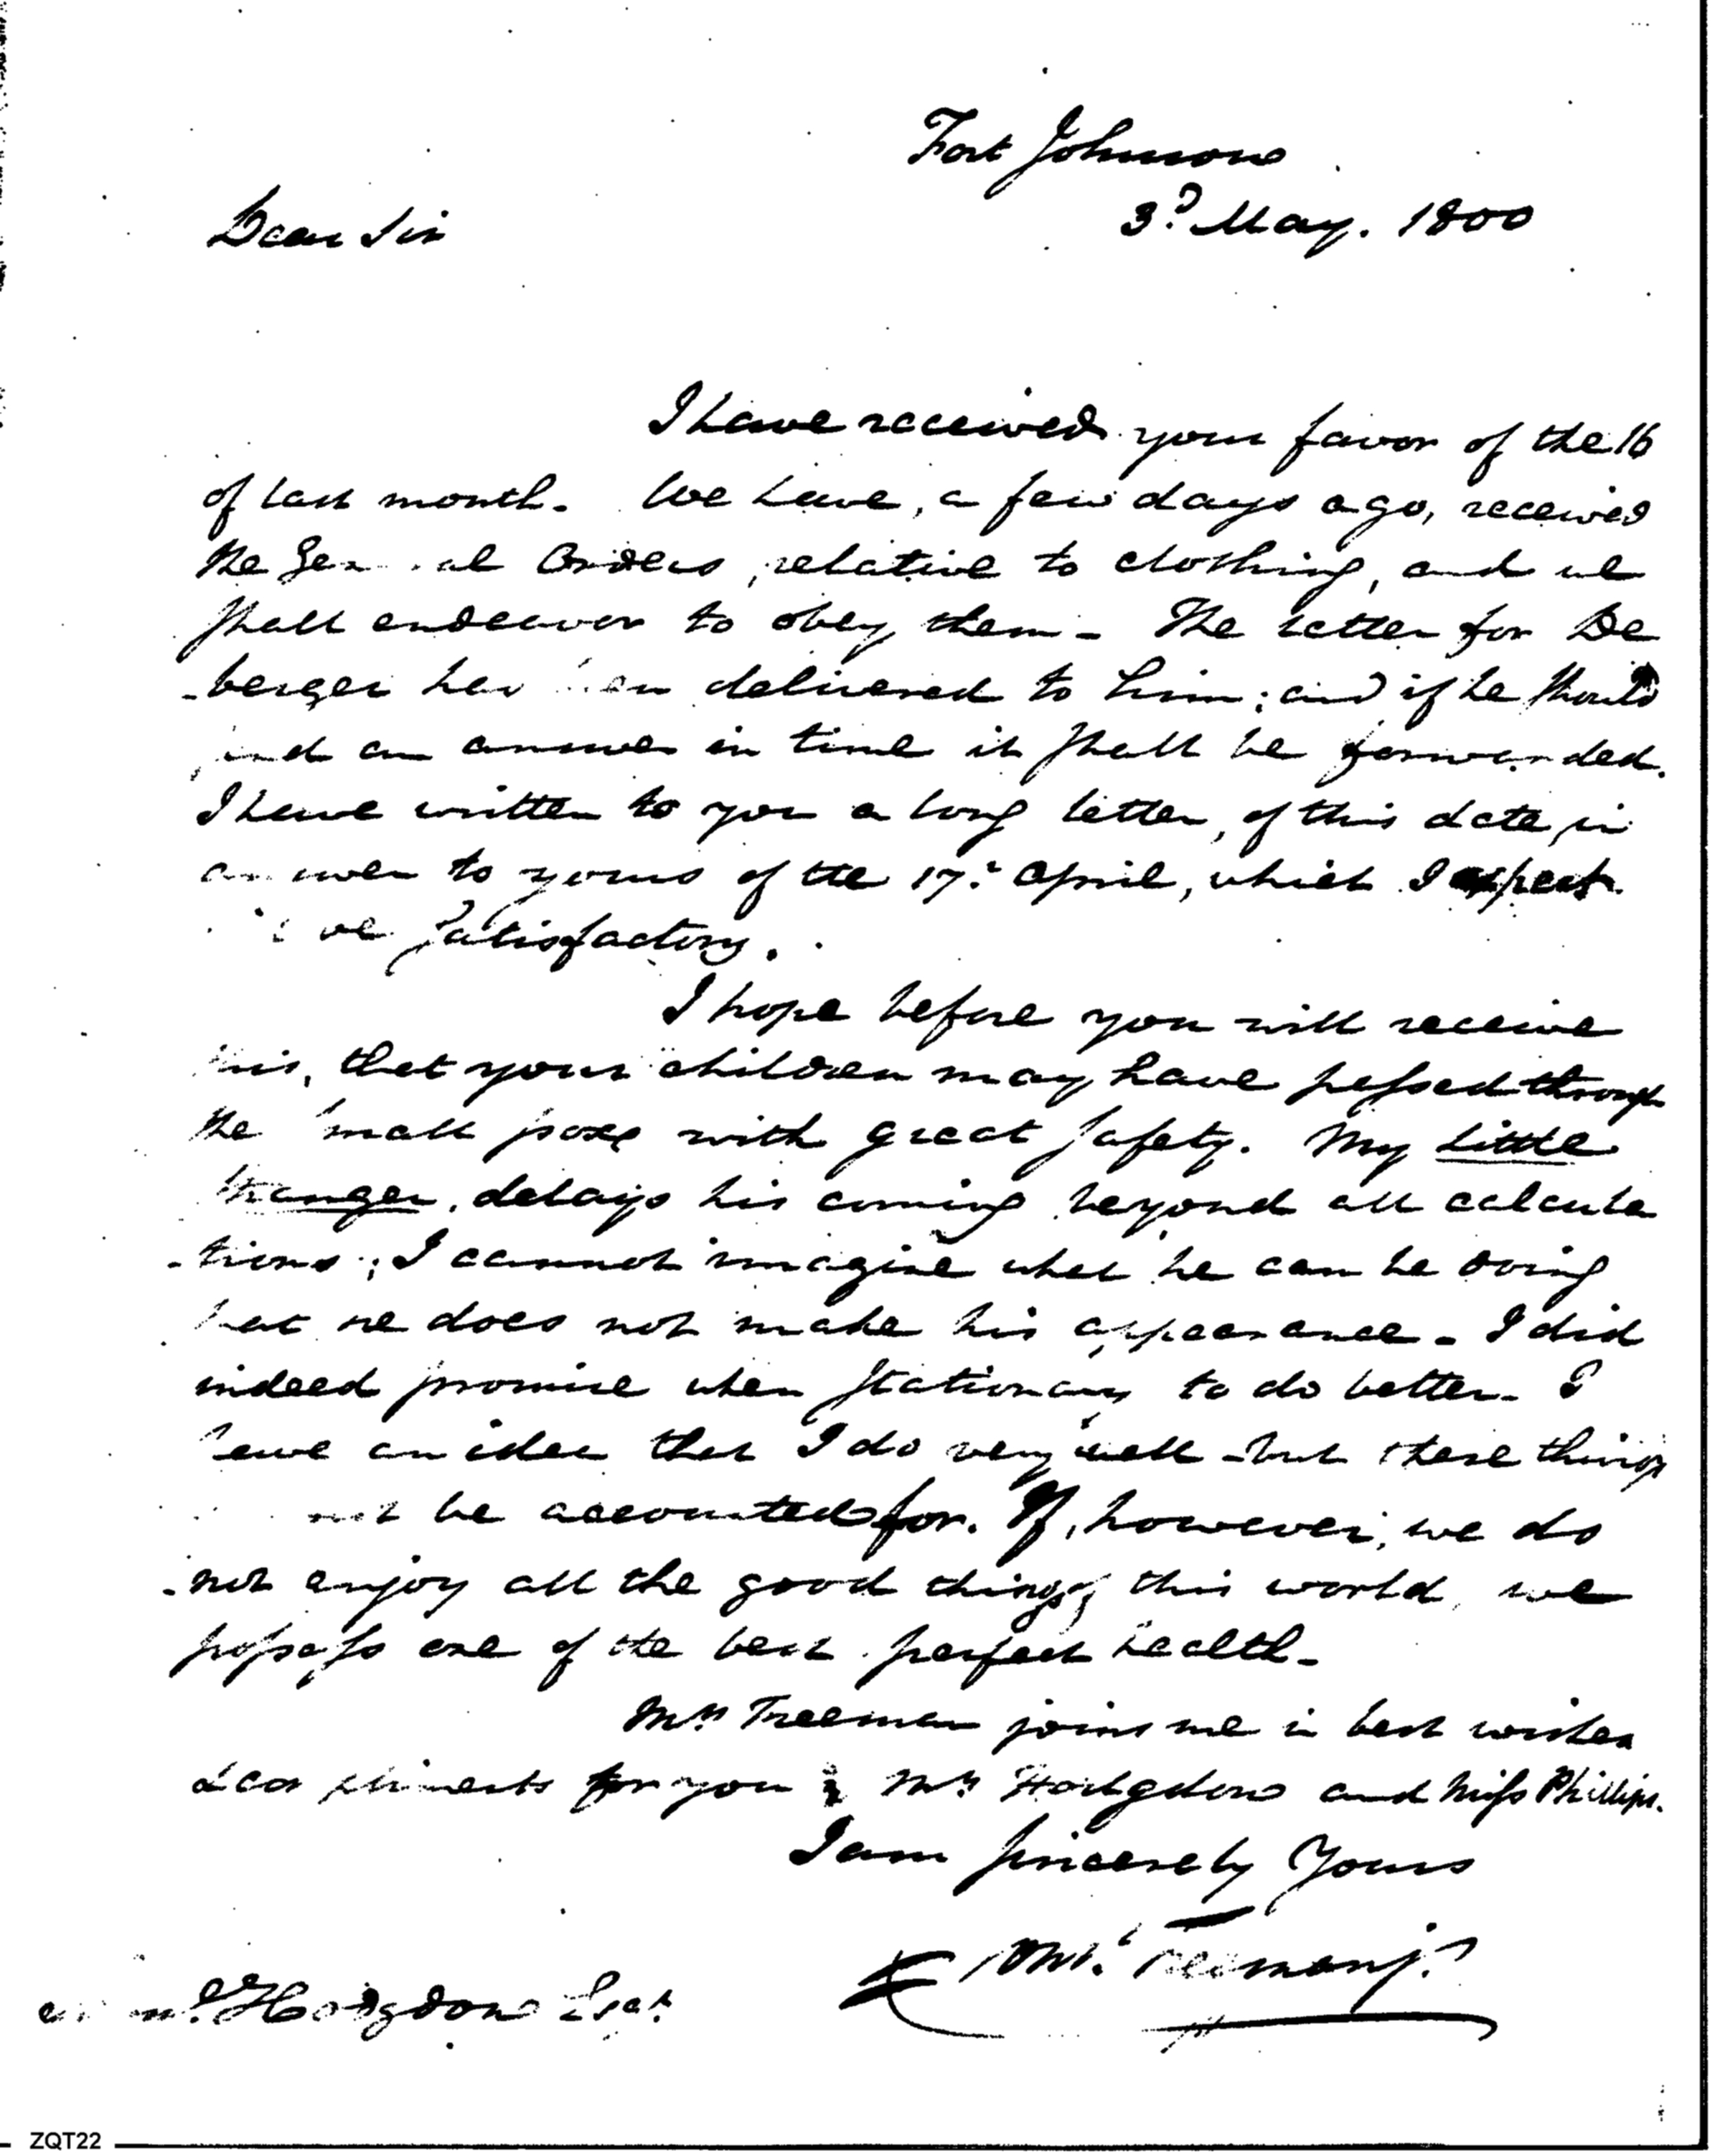 Fort Johnson
3.d May. 1800
Dear Sir
I have received your favor of the 16
of last month. We have, a few days ago, received
the General Orders, relative to clothing, and we
shall endeavor to obey them - The letter for De
-berger has been delivered to him; and if he should
send an answer in time it shall be forwarded.
I have written to you a long letter, of this date, in
answer to yours of the 17.th April, which I expect
be satisfactory.
I hope before you will receive
this, that your children may have passed through
the small poxe with great safety. My little
stranger, delays his coming beyond all calcula
-tions; I cannot imagine what he can be doing
that he does not make his appearance - I did
indeed promise when stationary to do better - I
have an idea that I do very well - but these things
not be accounted for. If, however, we do
-not enjoy all the good things of this world, we
possess one of the best perfect health -
Mrs Freeman joins me in best wishes
& compliments for you & Mrs Hodgdon and Miss Phillips.
I am sincerely Yours
Freeman jr
Hodgdon Esqr.
ZQT22